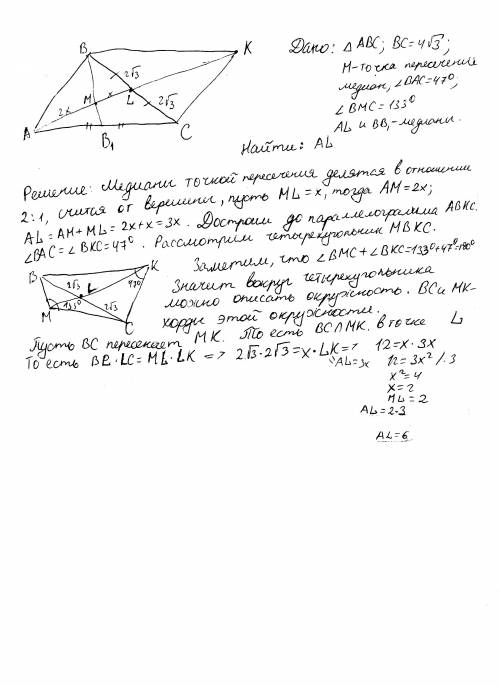 B
K
2√3
M
x
L
2x
2√3
A
B₁
C
Дано: △ ABC; BC=4√3;
M-точка пересечение
медиан, ∠BAC=47⁰,
∠BMC=133⁰
AL и BB₁-медиани.
Найти: AL
Решение: Медиани точкой пересечения делятся в отношении
2:1, считая от вершини, пусть ML=x, тогда AM=2x;
AL=AM+ML=2x+x=3x. Достроим до параллелограмма ABKC.
∠BAC=∠BKC=47⁰. Рассмотрим четырехугольник MBKC.
B
K
2√3
L
47⁰
M
133⁰
2√3
C
Заметим, что ∠BMC+∠BKC=133⁰+47⁰=180⁰
Значит вокруг четырехугольника
можно описать окружность. BC и MK-
хорды этой окружности.
Пусть BC пересекает MK. То есть BC∩MK в точке L
То есть BL·LC=ML·LK => 2√3·2√3=x·LK=>
AL=3x
12=x·3x
12=3x² /:3
x²=4
x=2
ML=2
AL=2·3
AL=6